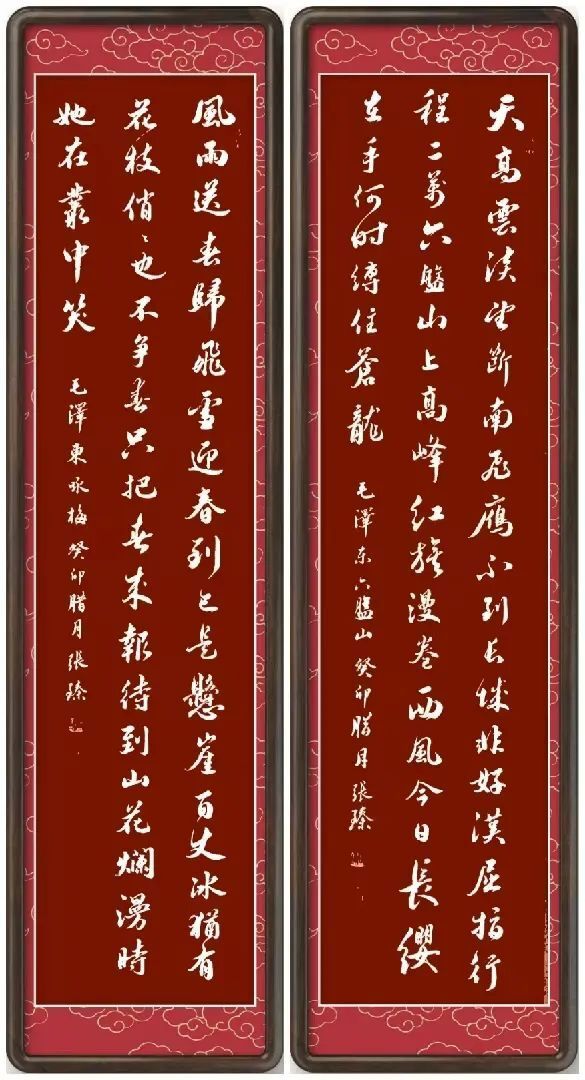 天高雲淡望斷南飛鴈不到長城非好漢屈指行
程二萬六盤山上高峰紅旗漫卷西風今日長纓
在手何時縛住蒼龍 毛澤东六盤山癸卯臘月張臻
風雨送春歸飛雪迎春到已是懸崖百丈冰猶有
花枝俏〻也不爭春只把春來報待到山花爛漫時
她在叢中笑 毛澤東咏梅癸卯臘月張臻